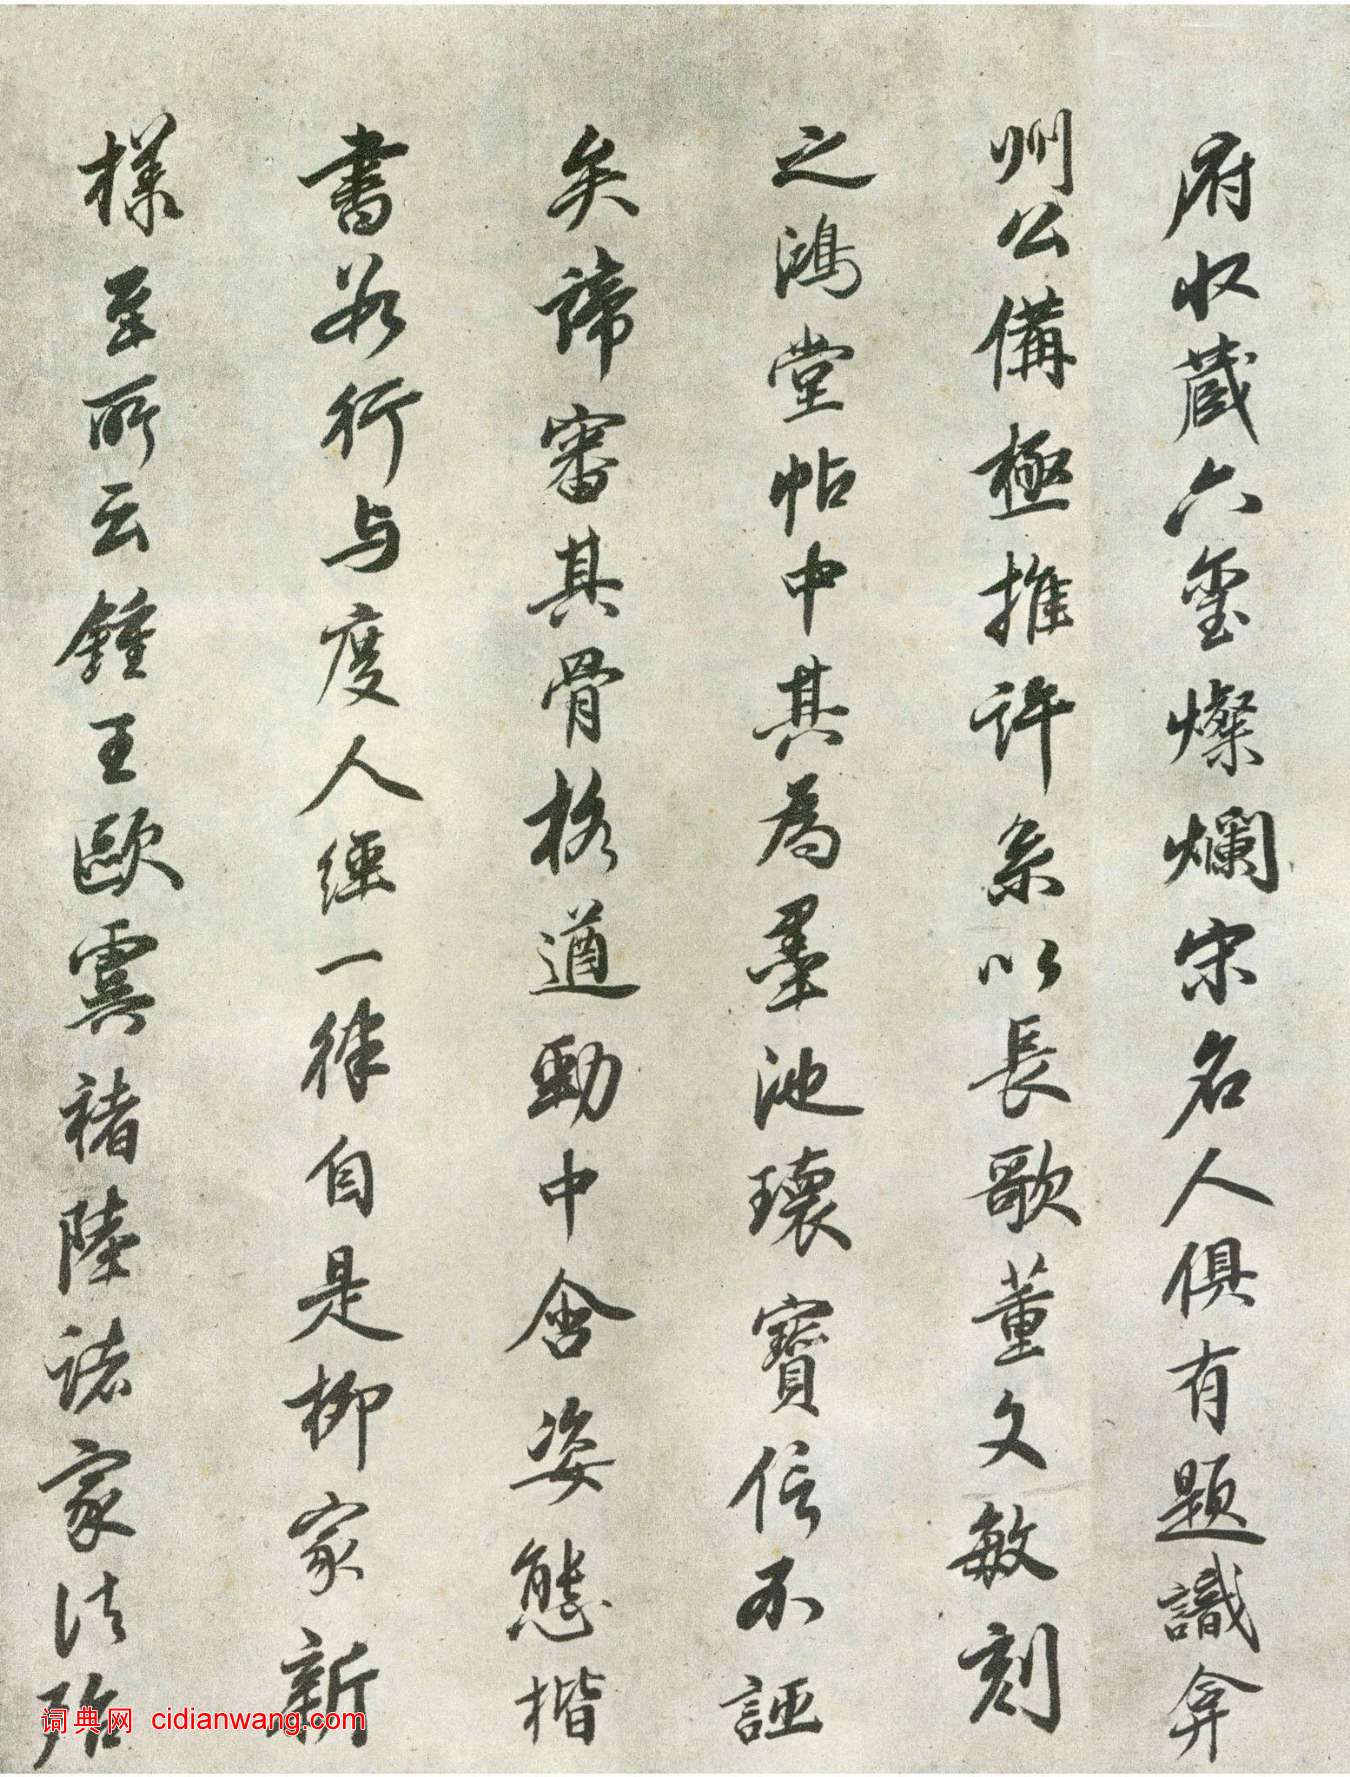 府収蔵六璽燦爛宋名人俱有題識弇
州公備極推許系以長歌董文敏刻
之鴻堂帖中其為墨池瓌寶信不誣
矣諦審其骨格遒勁中含姿態楷
書若行与度人經一律自是柳家新
樣至所云鍾王歐虞褚陸諸家法殆
词典网 cidianwang.com